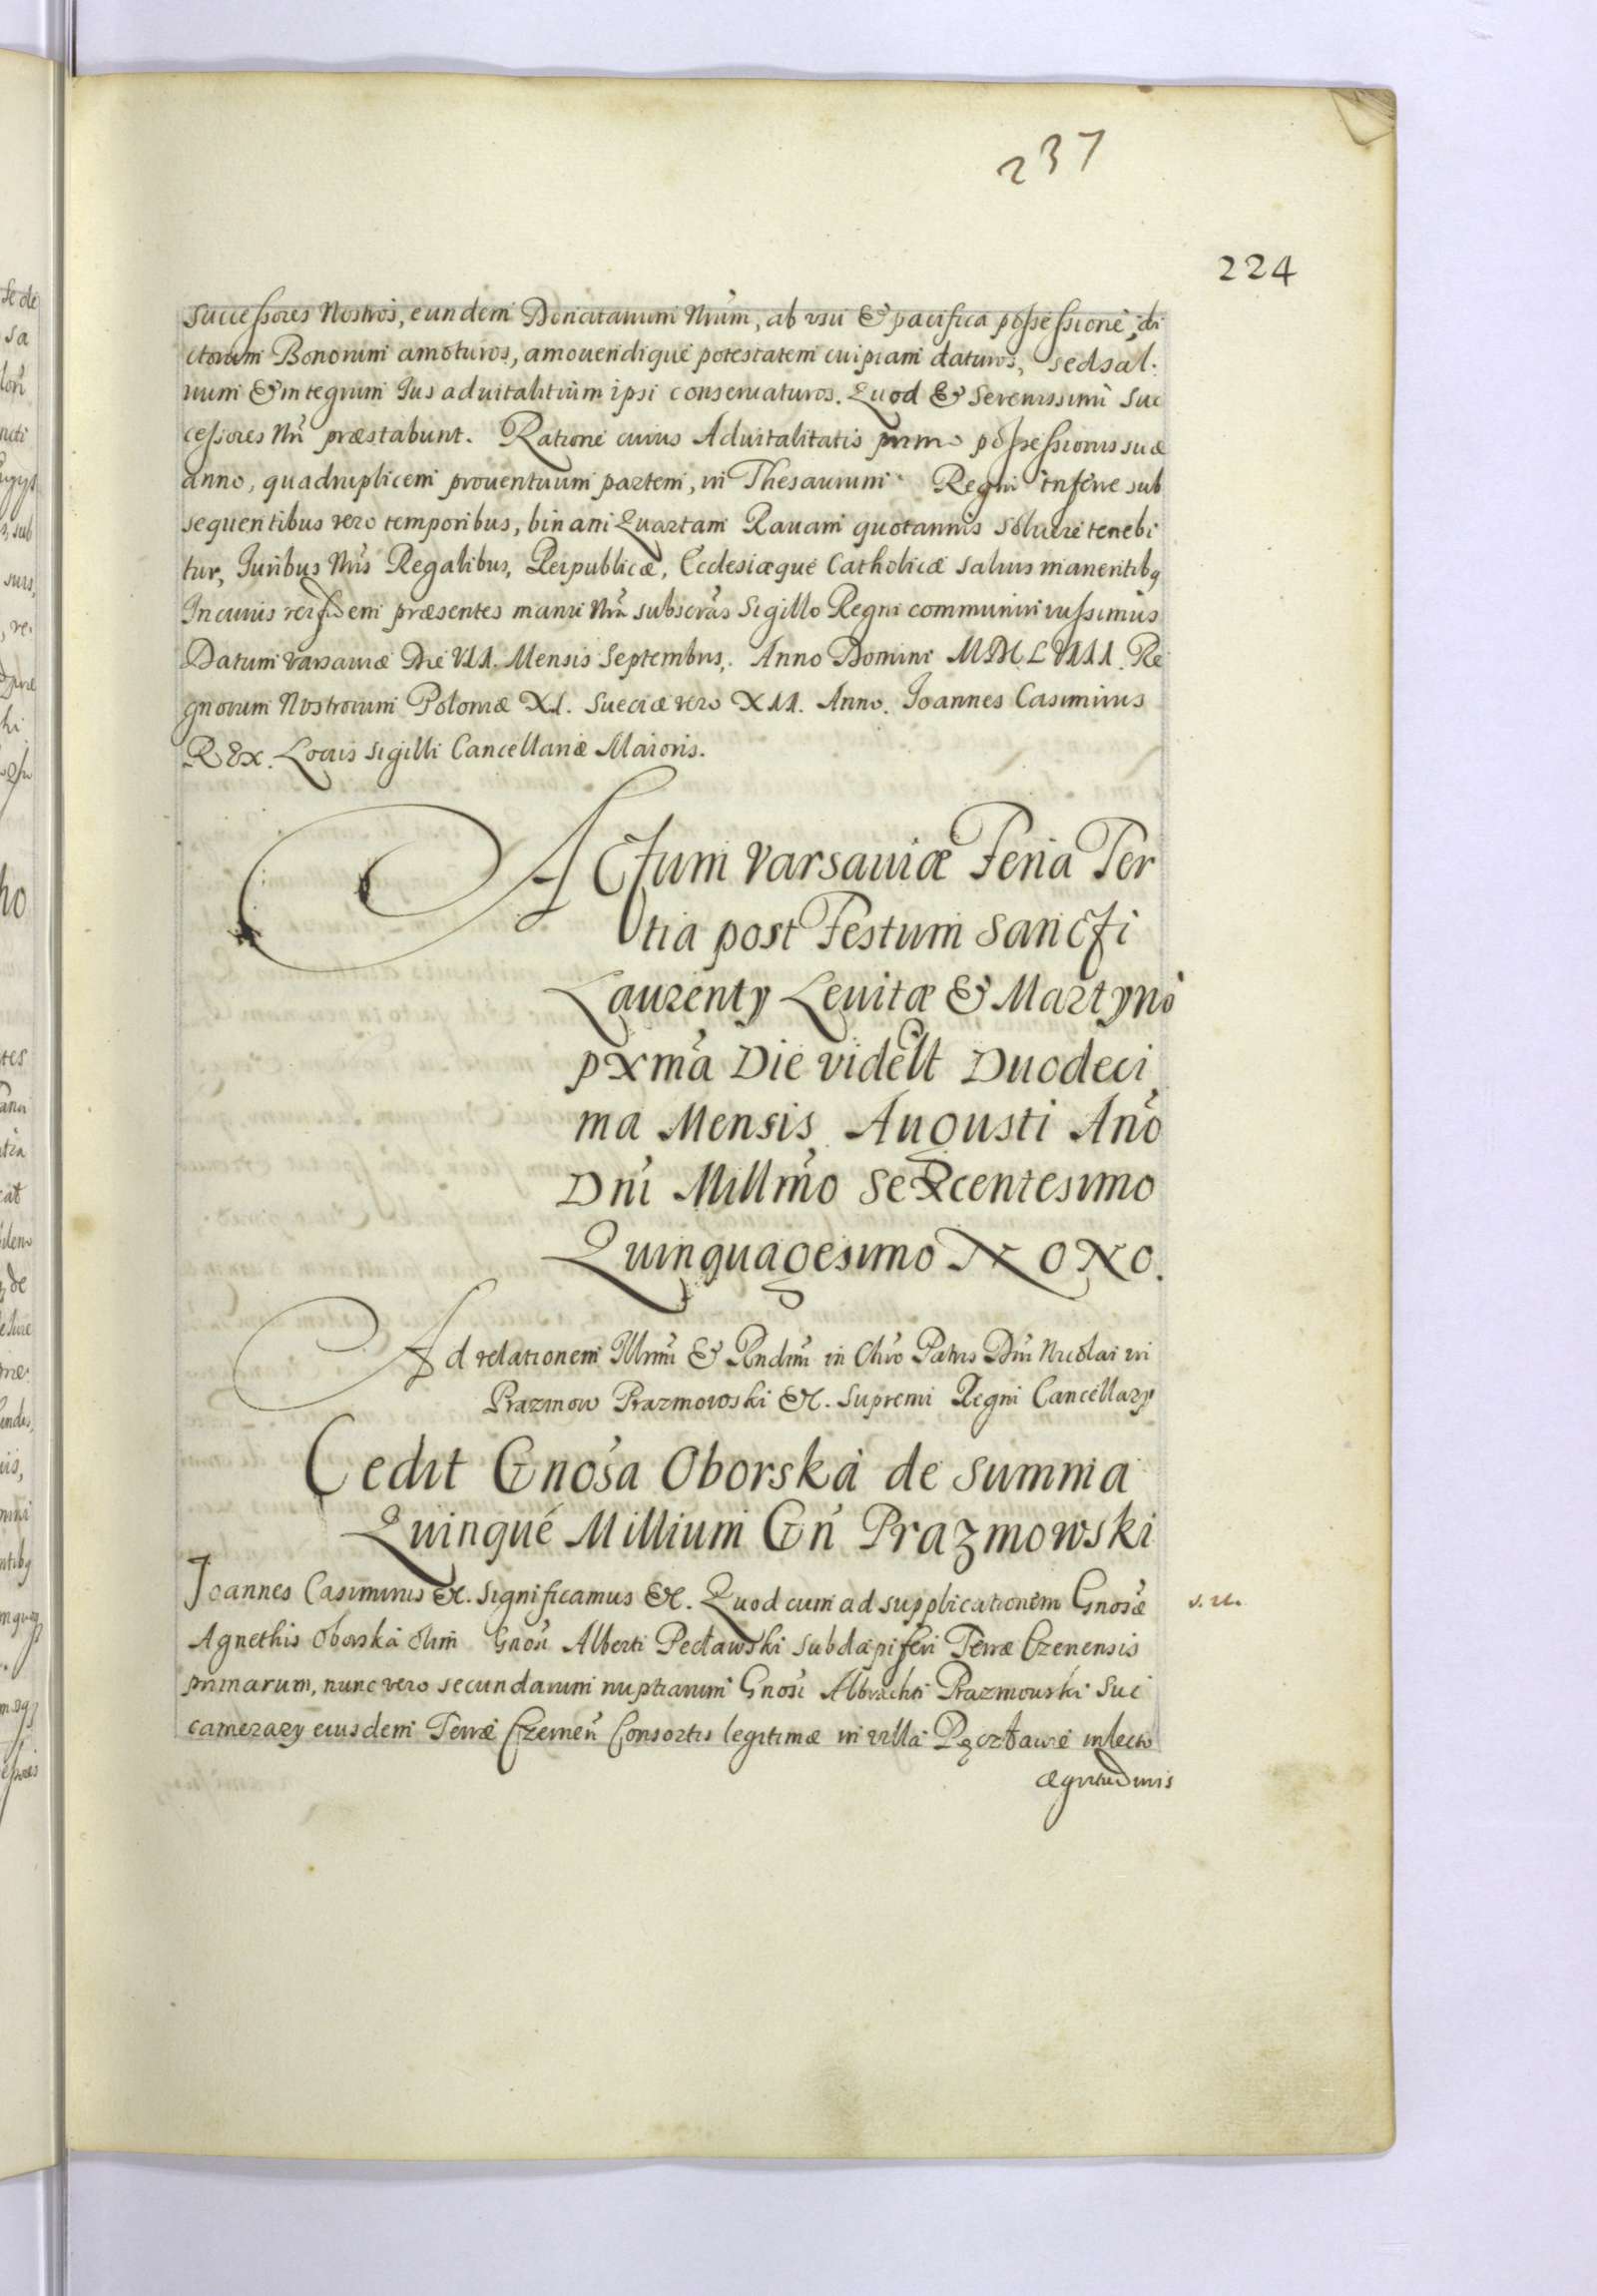 237
224
successores Nostros, eundem Donatarium Nrum, ab vsu & pacifica possessione, di
ctorum Bonorum amoturos, amouendique potestatem cuipiam daturos, sed sal.
uum & integrum Ius aduitalitium ipsi conseruaturos. Quod & Serenissimi Suc
cessores Nri præstabunt. Ratione cuius Aduitalitatis primo possessionis suæ
anno, quadruplicem prouentuum partem, in Thesaurum Regni inferre sub
sequentibus vero temporibus, binam Quartam Rauam quotannis soluere tenebi
tur, Iuribus Nris Regalibus, Reipublicæ, Ecclesiæque Catholicæ saluis manentibq
In cuius rei fidem præsentes manu Nra subscras Sigillo Regni communiri iussimus
Datum Varsauiæ Die VII. Mensis Septembris, Anno Domini MDCLVIII. Re
gnorum Nostrorum Poloniæ XI. Sueciæ vero XII. Anno. Ioannes Casimirus
REX. Locus Sigilli Cancellariæ Maioris.
Actum Varsauiæ Feria Ter
tia post Festum Sancti
Laurenty Leuitæ & Martyris
pxma Die videlt Duodeci
ma Mensis Augusti Ano
Dni Millmo Sexcentesimo
Quinquagesimo NONO.
Ad relationem Illrmi & Rndmi in Chro Patris Dni Nicolai in
Prazmow Prazmowski &c. Supremi Regni Cancellary
Cedit Gnosa Oborska de Summa
Quinque Millium Gn Prazmowski
Ioannes Casimirus &c. Significamus &c. Quod cum ad supplicationem Gnosæ
Agnethis Oborska olim Gnosi Alberti Pectawski Subdapiferi Terræ Czernensis
primarum, nunc vero secundarum nuptiarum Gnosi Albrachti Prazmowski Suc
camerary eiusdem Terræ Czernen Consortis legitimæ in villa Pęcztawie in lecto
ægritudinis